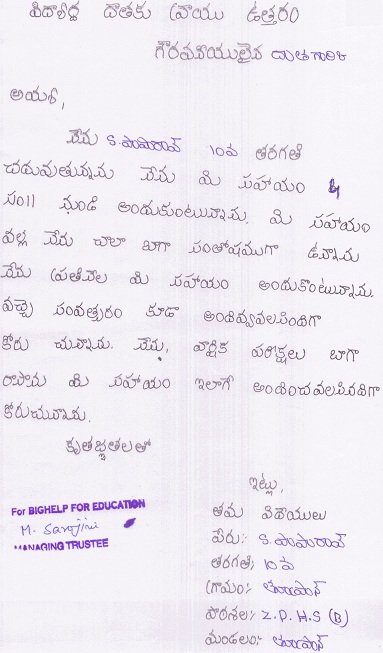 విద్యార్ధి దాతకు వ్రాయు ఉత్తరం
గౌరవనీయులైన దాతగారికి
అయ్యా,
నేను S. పాపారావ్ 10వ తరగతి
చదువుతున్నాను నేను మీ సహాయం 4
సం|| నుండి అందుకుంటున్నాను. మీ సహాయం
వల్ల నేను చాలా బాగా సంతోషముగా ఉన్నాను
నేను ప్రతినెల మీ సహాయం అందుకొంటున్నాను.
వచ్చే సంవత్సరం కూడా అందివ్వవలసిందిగా
కోరు చున్నాను. నేను, వార్షిక పరీక్షలు బాగా
రాసాను మీ సహాయం ఇలాగే అందించవలసినదిగా
కోరుచున్నాను.
కృతజ్ఞతలతో
ఇట్లు,
తమ విధేయులు
పేరు:- S. పాపారావ్
తరగతి: 10 వ
గ్రామం:-
పాఠశాల:- Z.P.H.S (B)
మండలం:-
For BIGHELP FOR EDUCATION
M. Sarojini
MANAGING TRUSTEE